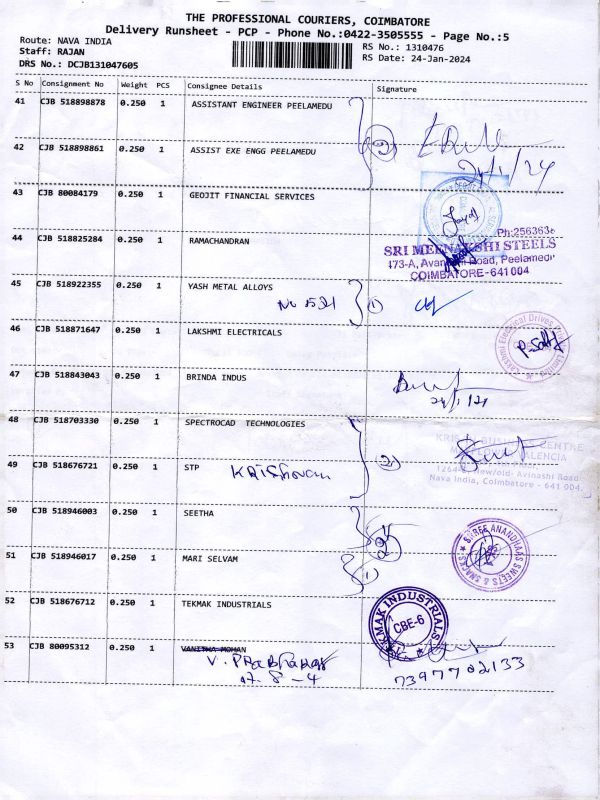 THE PROFESSIONAL COURIERS, COIMBATORE
Delivery Runsheet - PCP - Phone No.:0422-3505555 - Page No.:5
Route: NAVA INDIA
Staff: RAJAN
DRS No.: DCJB131047605
RS No.: 1310476
RS Date: 24-Jan-2024
S No Consignment No Weight PCS Consignee Details Signature
41 CJB 518898878 0.250 1 ASSISTANT ENGINEER PEELAMEDU
42 CJB 518898861 0.250 1 ASSIST EXE ENGG PEELAMEDU
2
24/1/24
43 CJB 80084179 0.250 1 GEOJIT FINANCIAL SERVICES
44 CJB 518825284 0.250 1 RAMACHANDRAN
Ph:256363
SRI MEENAKSHI STEELS
173-A, Avanashi Road, Peelamedu
COIMBATORE-641 004
45 CJB 518922355 0.250 1 YASH METAL ALLOYS
1
46 CJB 518871647 0.250 1 LAKSHMI ELECTRICALS
47 CJB 518843043 0.250 1 BRINDA INDUS
48 CJB 518703330 0.250 1 SPECTROCAD TECHNOLOGIES
49 CJB 518676721 0.250 1 STP Krishnan
2
CENTRE
Avinashi Road
Nava India, Coimbatore - 641 004.
50 CJB 518946003 0.250 1 SEETHA
51 CJB 518946017 0.250 1 MARI SELVAM
SHREE ANANDHAAS SWEETS & SNACKS
52 CJB 518676712 0.250 1 TEKMAK INDUSTRIALS
TEKMAK INDUSTRIALS
CBE-6
53 CJB 80095312 0.250 1 VANITHA MOHAN
V. Prabhakar
7397702133